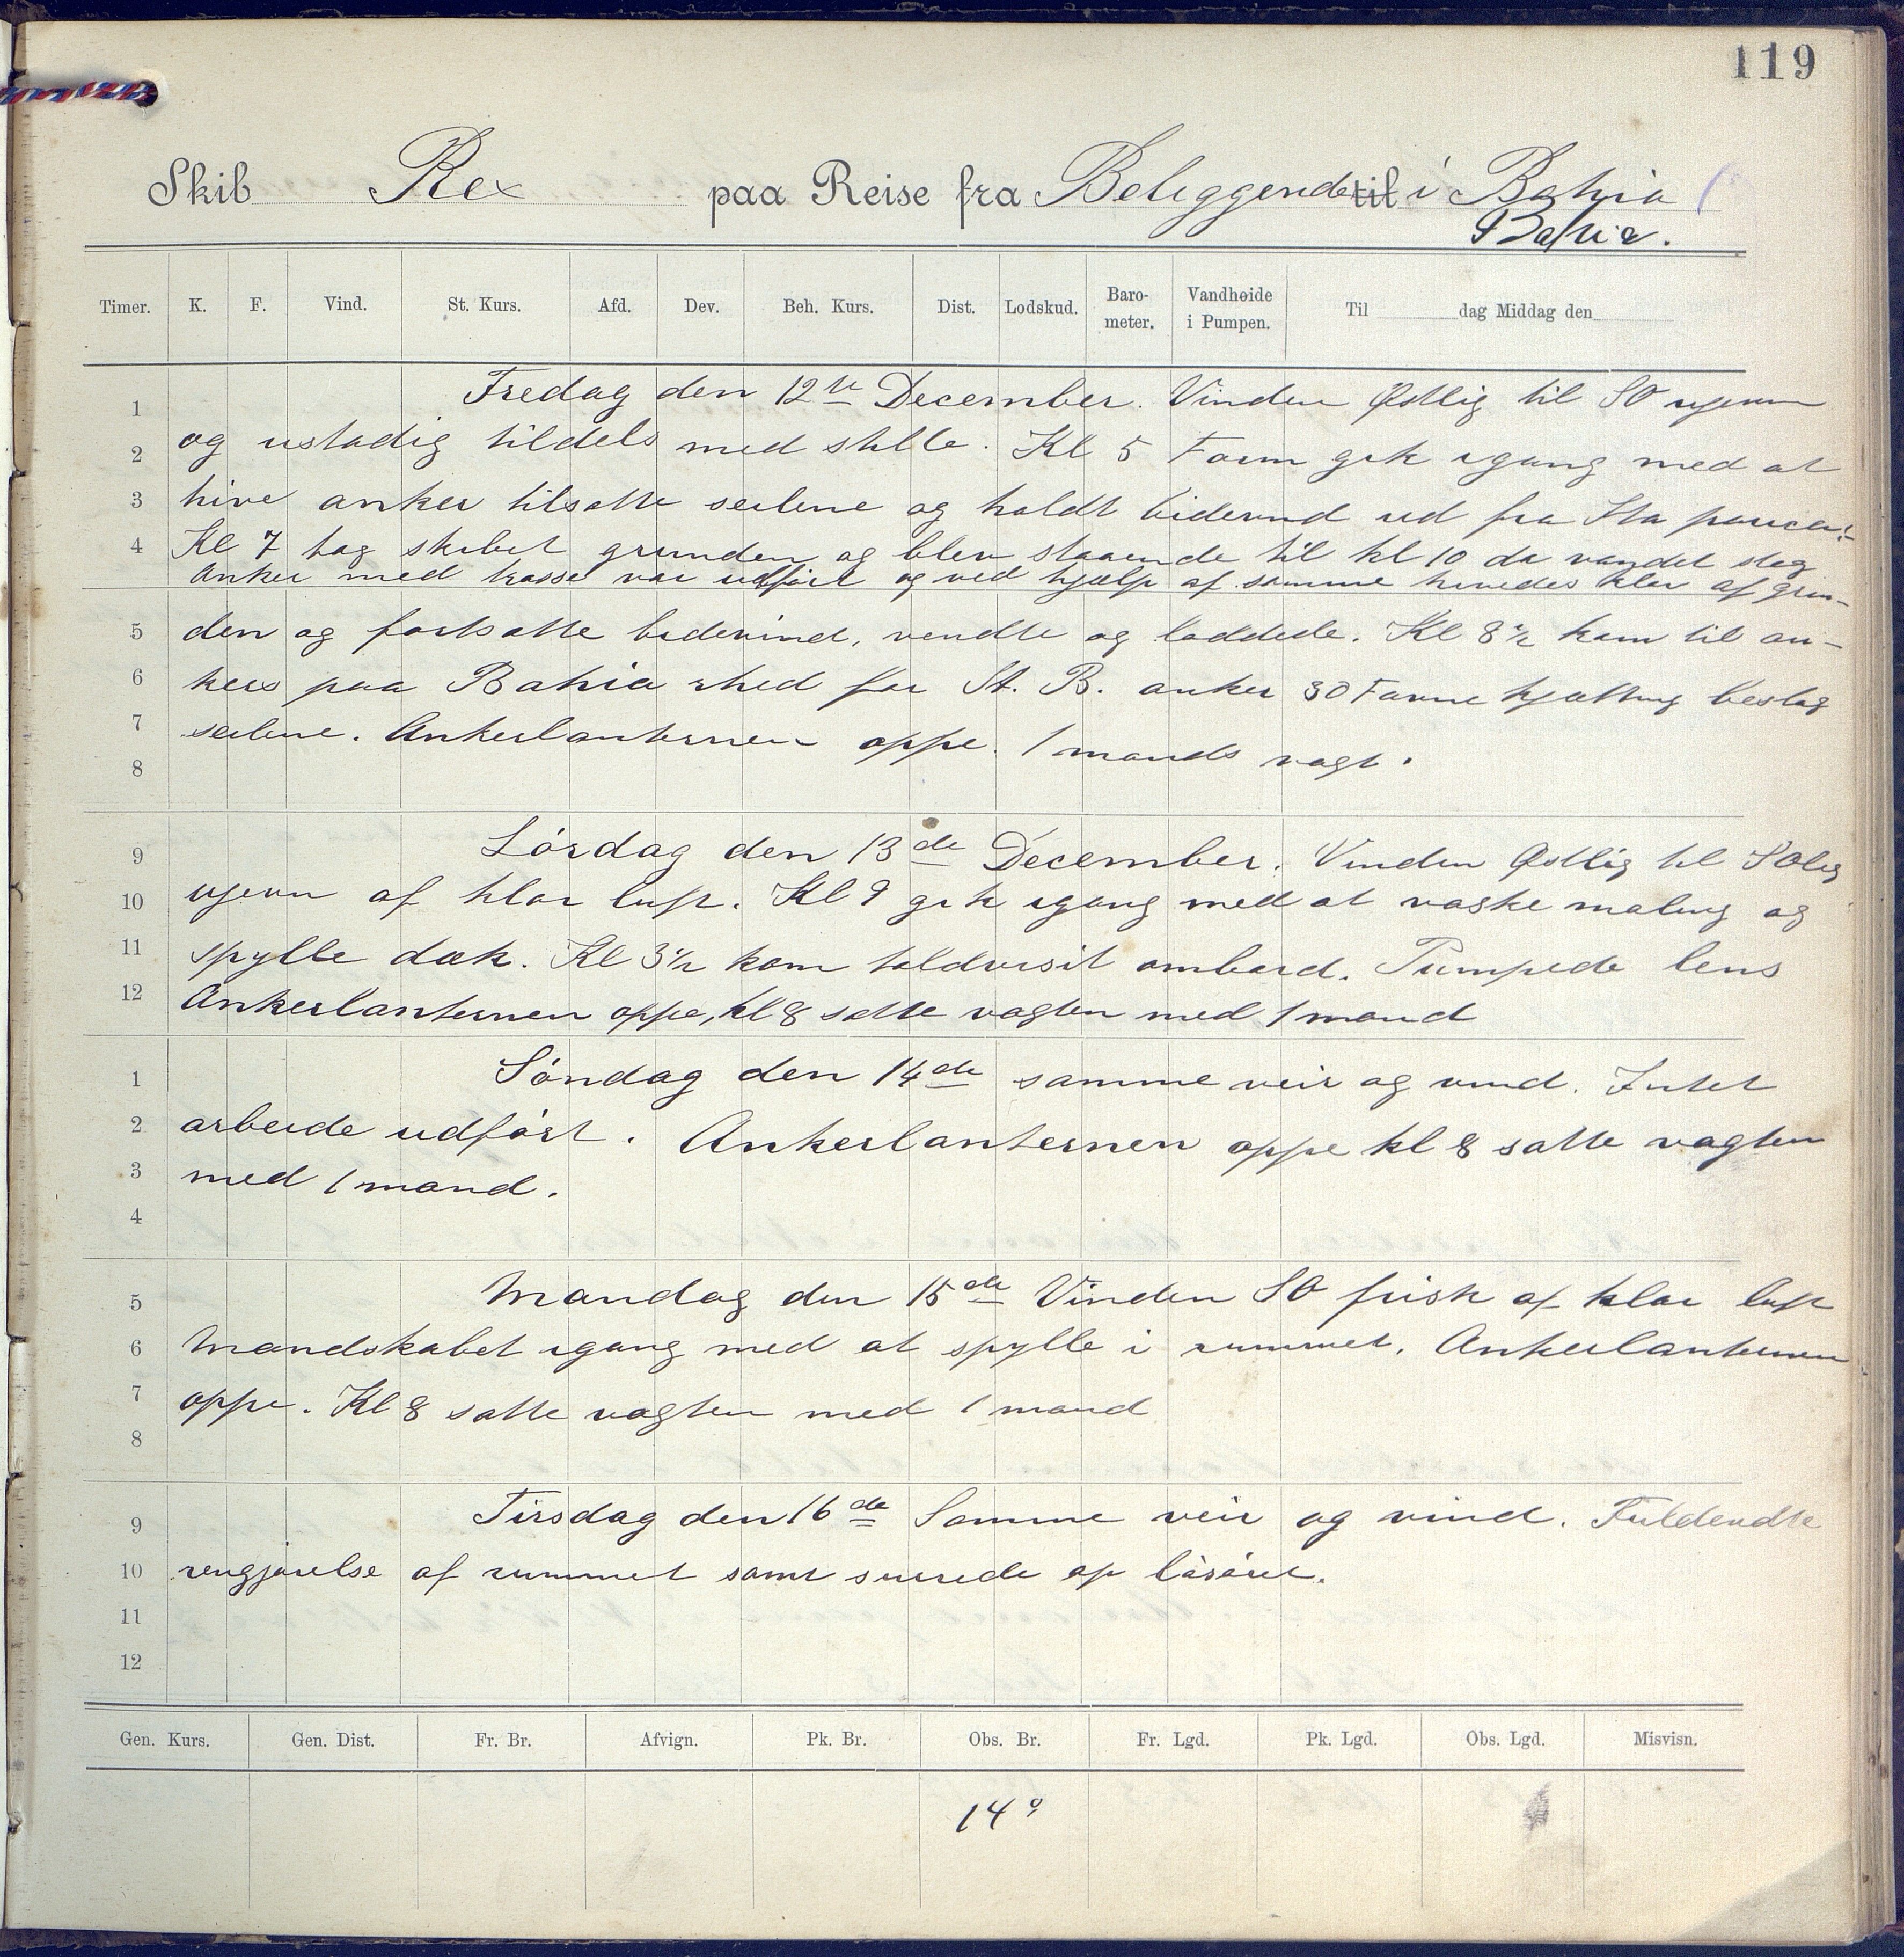 119
Skib Rex paa Reise fra Beliggende til i Bahia
Bahia.
Timer. K. F. Vind. St. Kurs. Afd. Dev. Beh. Kurs. Dist. Lodskud. Baro-meter. Vandhøide i Pumpen. Til dag Middag den
1 Fredag den 12te December. Vinden Østlig til SO ujevn
2 og ustadig tildels med stille. Kl 5 Form gik igang med at
3 hive anker tilsatte seilene og holdt bidevind ud fra Ita
4 Kl 7 tog skibet grunden og blev staaende til kl 10 da vandet steg
Anker med trosse var udført og ved hjælp af samme hivedes klar af grun-
5 den og fortsatte bidevind, vendte og loddede. Kl 8½ kom til an-
6 kers paa Bahia rhed for St. B. anker 30 Favne kjætting beslog
7 seilene. Ankerlanternen oppe. 1 mands vagt.
8
9 Lørdag den 13de December. Vinden Østlig til SOlig
10 ujevn af klar luft. Kl 9 gik igang med at vaske maling og
11 spylle dæk. Kl 3½ kom toldvisit ombord. Pumpede lens
12 Ankerlanternen oppe, kl 8 satte vagten med 1 mand
1 Søndag den 14de samme veir og vind. Intet
2 arbeide udført. Ankerlanternen oppe kl 8 satte vagten
3 med 1 mand.
4
5 Mandag den 15de Vinden SO frisk af klar luft
6 Mandskabet igang med at spylle i rummet. Ankerlanternen
7 oppe. Kl 8 satte vagten med 1 mand
8
9 Tirsdag den 16de Samme veir og vind. Fuldendte
10 rengjørelse af rummet samt surrede op
11
12
Gen. Kurs. Gen. Dist. Fr. Br. Afvign. Pk. Br. Obs. Br. Fr. Lgd. Pk. Lgd. Obs. Lgd. Misvisn.
14°